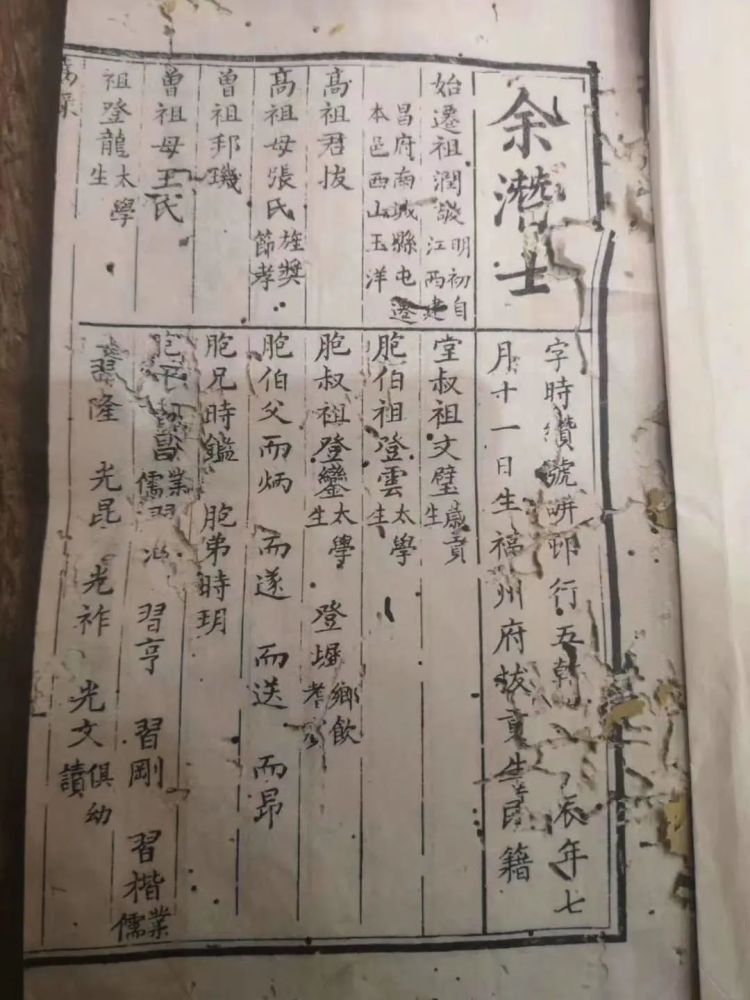 余潛士
字時纘號耕邨行五乾 辰年七
月十一日生福州府拔貢生民籍
始遷祖潤 明初自江西建
昌府南城縣屯遷本邑西山玉洋
高祖君拔
高祖母張氏旌獎節孝
曾祖邦璣
曾祖母王氏
祖登龍太學生
堂叔祖文璧歲貢生
胞伯祖登雲太學生
胞叔祖登鑾太學生 登墀鄉飲耆
胞伯父而炳 而遂 而送 而昂
胞兄時鑑 胞弟時玥
業儒習 習亨 習剛 習楷業儒
習隆 光昆 光祚 光文俱幼讀